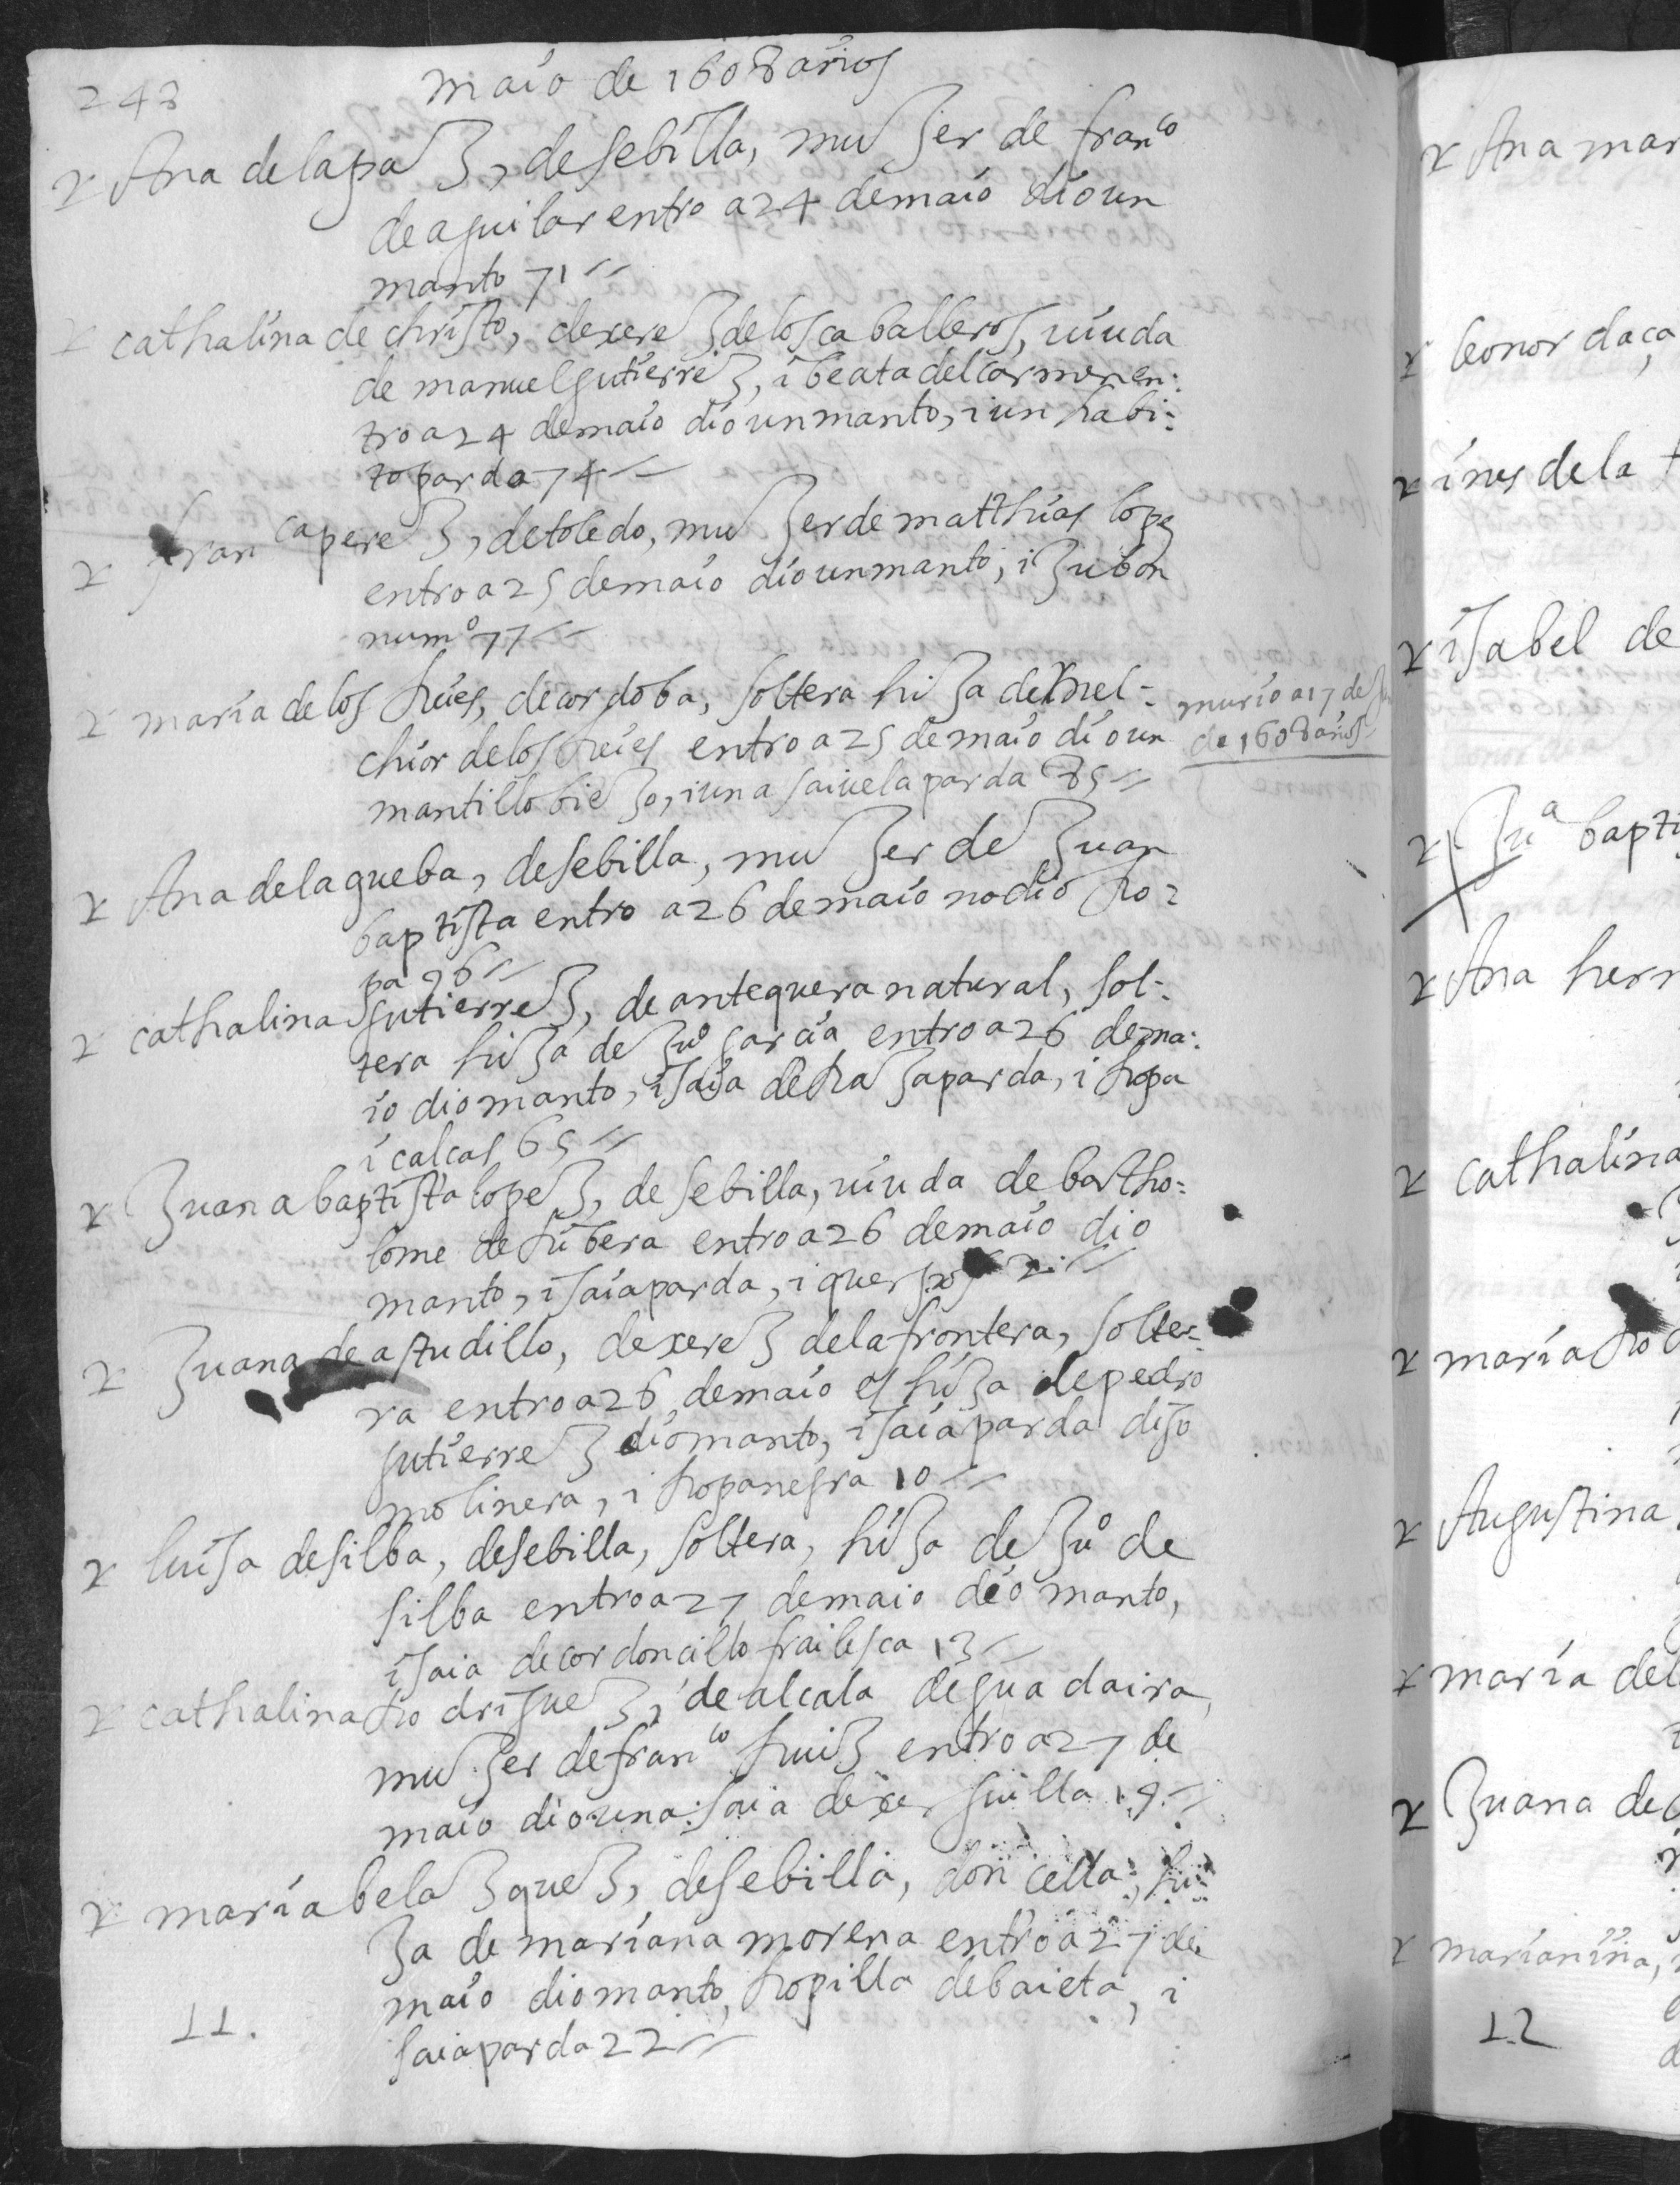 243 maio de 1608 años
Ana de la paz, de sebilla, muger de fran^co
de aguilar entro a 24 de maio dio un
manto 71
cathalina de christo, de xerez de los caballeros, uiuda
de manuel gutierrez, i beata del carmen en:
tro a 24 de maio dio un manto, i un habi:
to pardo 74
fran^ca perez, de toledo, muger de matthias lopez
entro a 25 de maio dio un manto, i jubon
num^o 77
maria de los reies, de cordoba, soltera hija de mel-
chior de los reies entro a 25 de maio dio un
mantillo biejo, i una saiuela parda 85
murio a 17 de ju
de 1608 años
Ana de la gueba, de sebilla, muger de juan
baptista entro a 26 de maio no dio ro:
pa 96
cathalina gutierrez, de antequera natural, sol:
tera hija de ju^o garcia entro a 26 de ma:
io dio manto, i saia de raja parda, i ropa
i calcas 65
juana baptista lopez, de sebilla, uiuda de bartho:
lome de ribera entro a 26 de maio dio
manto, i saia parda, i querpos 2
juana de astudillo, de xerez de la frontera, solte:
ra entro a 26 de maio es hija de pedro
gutierrez dio manto, i saia parda digo
molinera, i ropa negra 10
luisa de silba, de sebilla, soltera, hija de ju^o de
silba entro a 27 de maio dio manto,
i saia de cordoncillo frailesca 13
cathalina rodriguez, de alcala de guadaira,
muger de fran^co ruiz entro a 27 de
maio dio una saia de xerguilla 19
maria belazquez, de sebilla, doncella, hi:
ja de mariana morena entro a 27 de
maio dio manto, ropilla de baieta, i
saia parda 22
11.
Ana mar
leonor daça
ines de la
isabel de
ju^a bapti
Ana hern
cathalina
maria ro
Augustina
maria del
juana de
marianina,
12